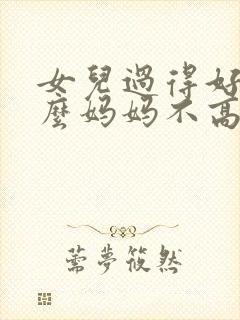 女兒過得好
麼媽媽不高
薷夢筱然